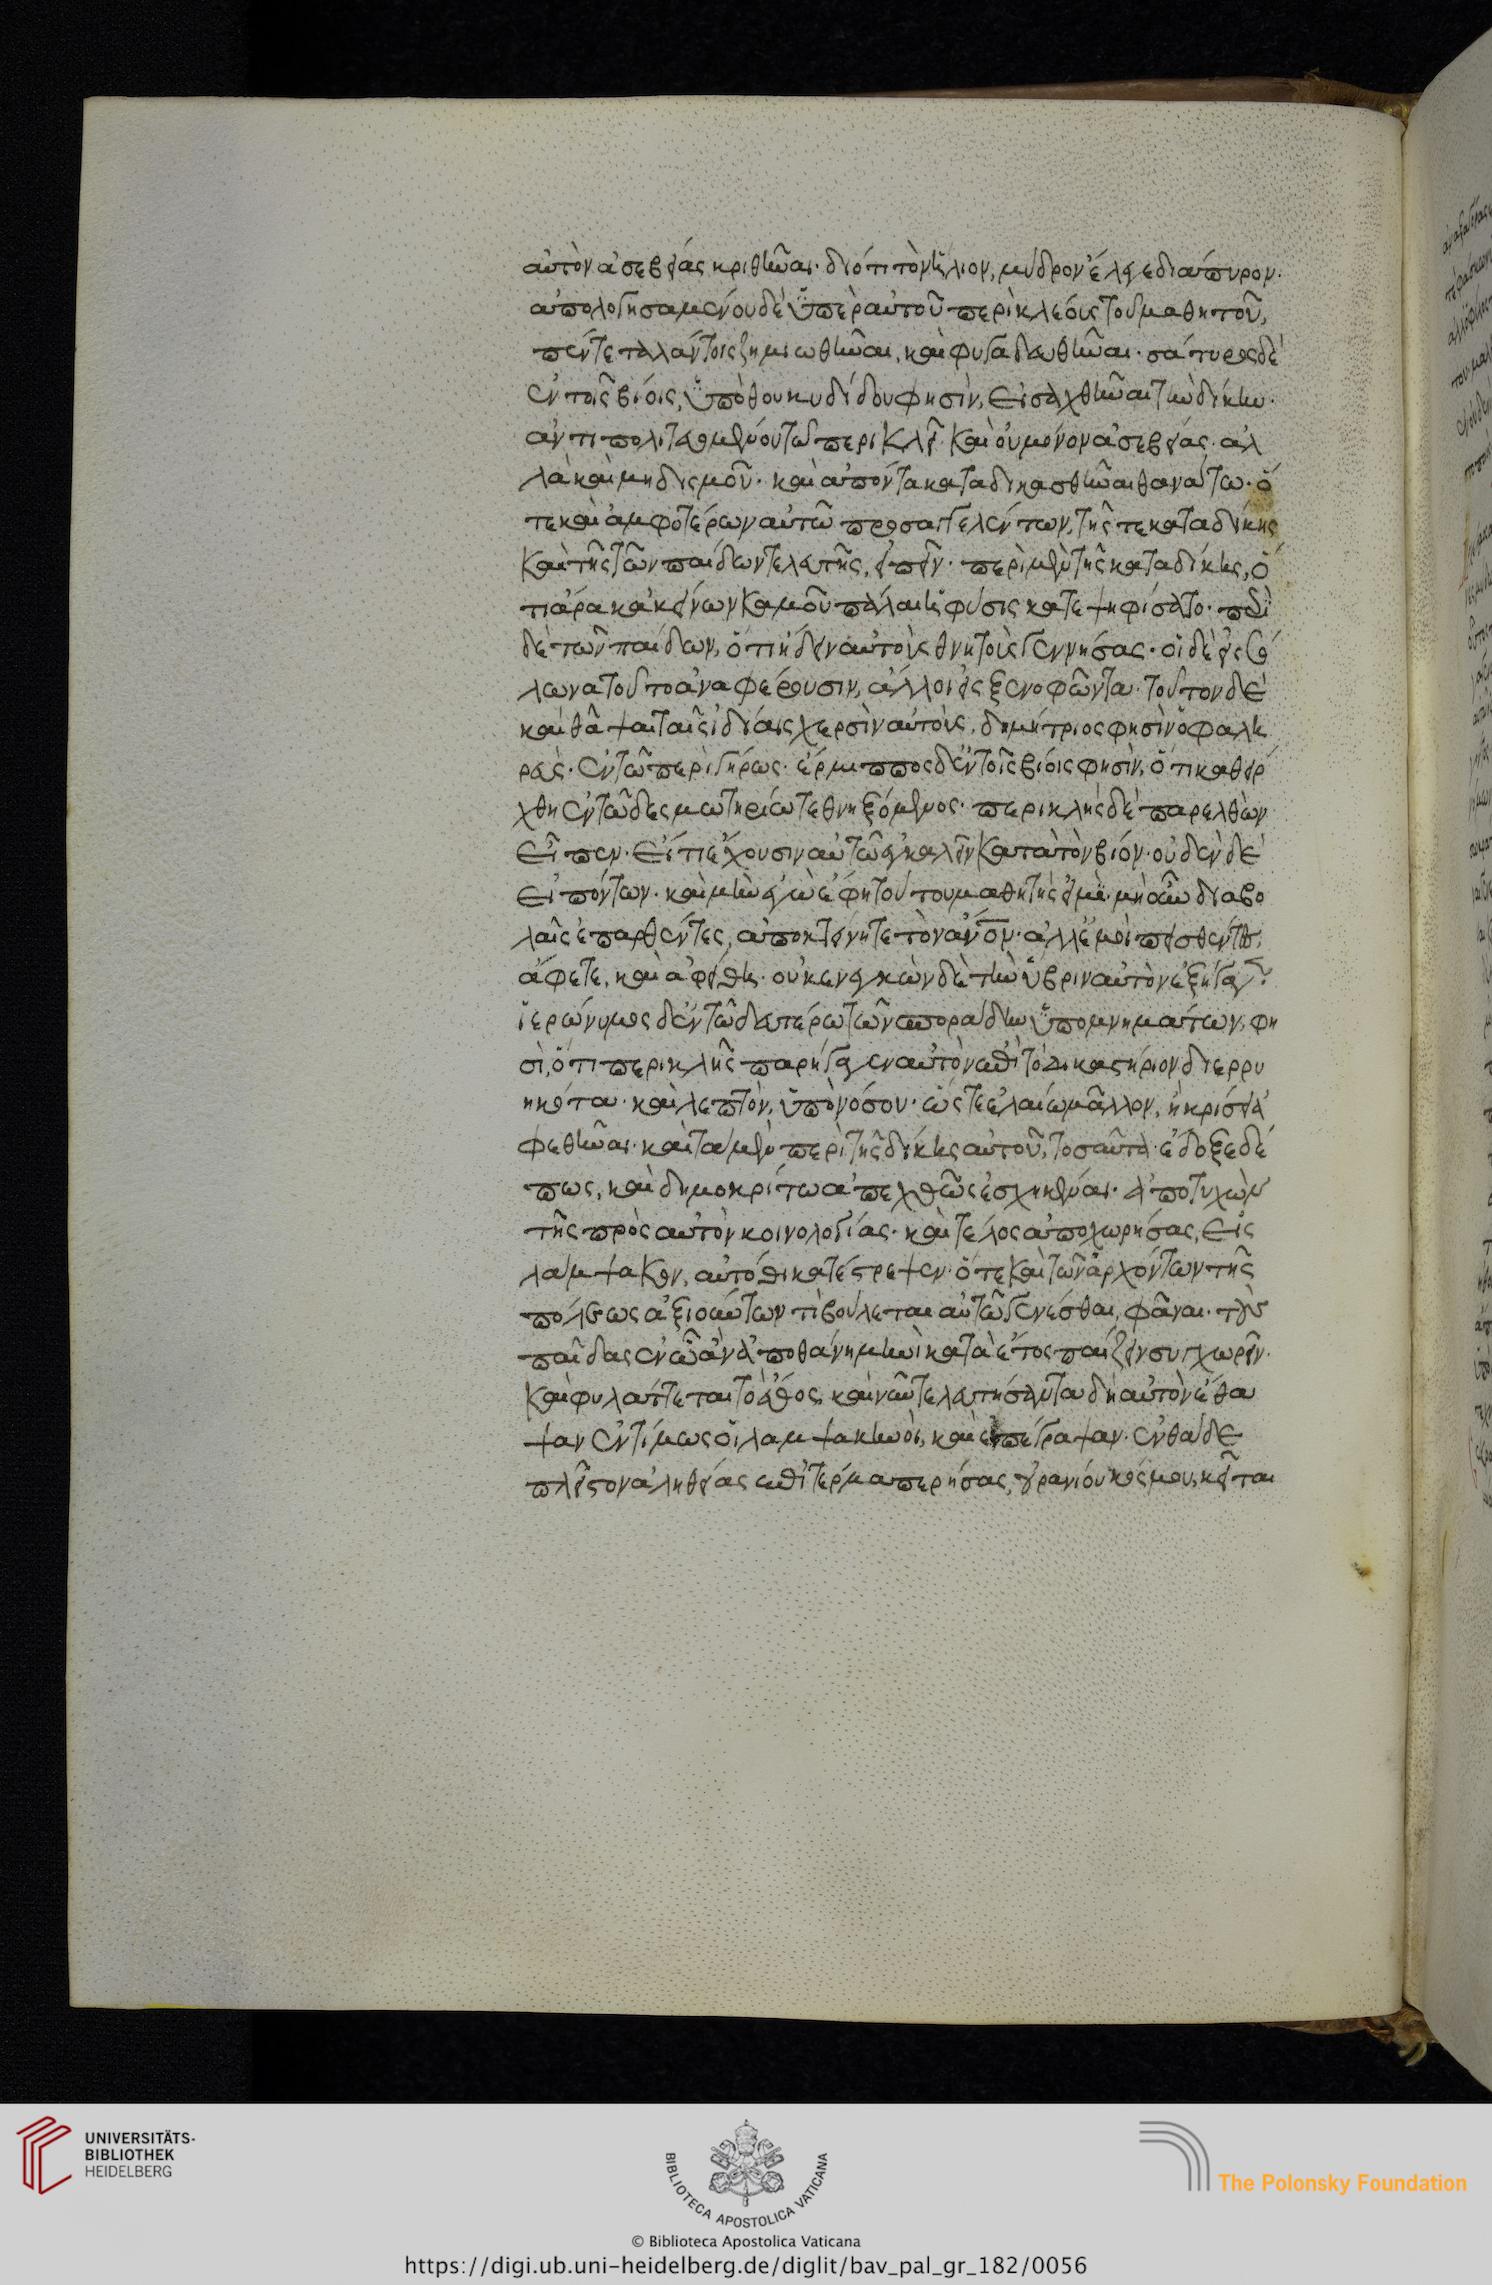 αὐτὸν ἀσεβείας κριθῆναι· διότι τὸν ἥλιον, μύδρον ἔλεγε διάπυρον.
ἀπολογησαμένου δὲ ὑπὲρ αὐτοῦ περικλέους τοῦ μαθητοῦ,
πέντε ταλάντοις ζημιωθῆναι, καὶ φυγαδευθῆναι. σάτυρος δὲ
ἐν τοῖς βίοις, ὑπὸ θουκυδίδου φησὶν, εἰσαχθῆναι τὴν δίκην.
ἀντιπολιτευομένου τῶ περικλεῖ. καὶ οὐ μόνον ἀσεβείας. ἀλ
λὰ καὶ μηδισμοῦ. καὶ ἀπόντα καταδικασθῆναι θανάτω. ὅ
τε καὶ ἀμφοτέρων αὐτῶ προσαγγελέντων, τῆς τε καταδίκης
καὶ τῆς τῶν παίδων τελευτῆς, εἰπεῖν. περὶ μὲν τῆς καταδίκης, ὅ
τι ἄρα κἀκείνων κἀμοῦ πάλαι ἡ φύσις κατεψηφίσατο. περὶ
δὲ τῶν παίδων, ὅτι ᾔδειν αὐτοὺς θνητοὺς γεννήσας. οἱ δὲ εἰς σό
λωνα τοῦτο ἀναφέρουσιν, ἄλλοι εἰς ξενοφῶντα. τοῦτον δὲ
καὶ θάψαι ταῖς ἰδίαις χερσὶν αὐτοὺς, δημήτριος φησὶν ὁ φαλη
ρεὺς. ἐν τῶ περὶ γήρως. ἕρμιππος δ' ἐν τοῖς βίοις φησὶν, ὅτι καθείρ
χθη ἐν τῶ δεσμωτηρίω τεθνηξόμενος. περικλῆς δὲ παρελθὼν
εἶπεν. εἴ τι ἔχουσιν αὐτῶ ἐγκαλεῖν κατὰ τὸν βίον. οὐδὲν δὲ
εἰπόντων. καὶ μὴν ἐγὼ ἔφη τούτου μαθητής εἰμὶ. μὴ οὖν διαβο
λαῖς ἐπαρθέντες, ἀποκτείνητε τὸν ἄνον. ἀλλ' ἐμοὶ πεισθέντες,
ἄφετε, καὶ ἀφείθη. οὐκ ἐνεγκὼν δὲ τὴν ὕβριν αὐτὸν ἐξήγαγεν.
ἱερώνυμος δ' ἐν τῶ δευτέρω τῶν σποράδων ὑπομνημάτων, φη
σὶ, ὅτι περικλῆς παρήγαγεν αὐτὸν ἐπὶ τὸ δικαστήριον διερρυ
ηκότα. καὶ λεπτὸν, ὑπὸ νόσου. ὥστε ἐλέω μᾶλλον, ἢ κρίσει ἀ
φεθῆναι. καὶ τὰ μὲν περὶ τῆς δίκης αὐτοῦ, τοσαῦτα. ἔδοξε δέ
πως, καὶ δημοκρίτω ἀπεχθῶς ἐσχηκέναι. ἀποτυχὼν
τῆς πρὸς αὐτὸν κοινολογίας. καὶ τέλος ἀποχωρήσας, εἰς
λάμψακον, αὐτόθι κατέστρεψεν. ὅτε καὶ τῶν ἀρχόντων τῆς
πόλεως ἀξιούντων τί βούλεται αὐτῶ γενέσθαι, φᾶναι. τοὺς
παῖδας ἐν ὧ ἂν ἀποθάνη μηνὶ κατὰ ἔτος παίζειν συγχωρεῖν.
καὶ φυλάττεται τὸ ἔθος καὶ νῦν. τελευτήσαντα δὴ αὐτὸν ἔθα
ψαν ἐντίμως οἱ λαμψακηνοὶ, καὶ ἐπέγραψαν. ἐνθάδε
πλεῖστον ἀληθείας ἐπὶ τέρμα περήσας, οὐρανίου κόσμου, κεῖται
UNIVERSITÄTS-
BIBLIOTHEK
HEIDELBERG
BIBLIOTECA APOSTOLICA VATICANA
The Polonsky Foundation
© Biblioteca Apostolica Vaticana
https://digi.ub.uni-heidelberg.de/diglit/bav_pal_gr_182/0056